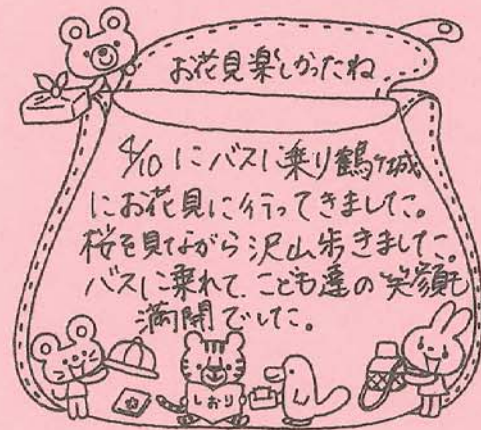 お花見楽しかったね
4/10 にバスに乗り鶴ヶ城
にお花見に行ってきました。
桜を見ながら沢山歩きました。
バスに乗れて、こども達の笑顔も
満開でした。
しおり